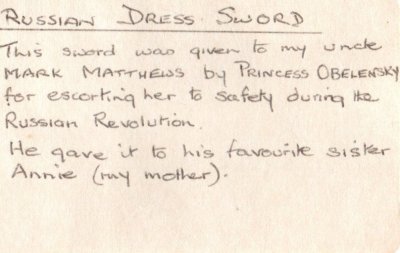 RUSSIAN DRESS SWORD
This sword was given to my uncle
MARK MATTHEWS by PRINCESS OBELENSKY
for escorting her to safety during the
RUSSIAN REVOLUTION.
He gave it to his favourite sister
Annie (my mother).